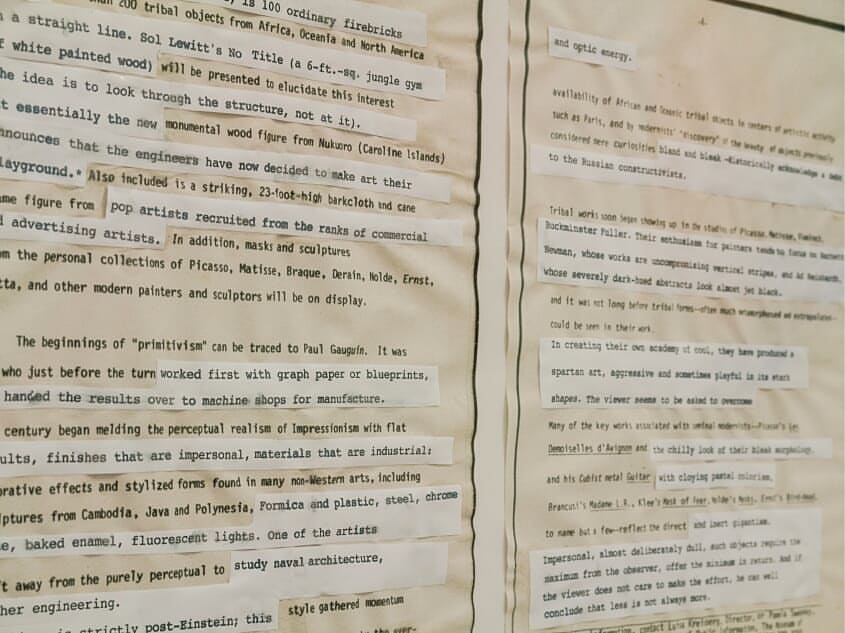 than 200 tribal objects from Africa, Oceania and North America
is 100 ordinary firebricks
a straight line. Sol Lewitt's No Title (a 6-ft.-sq. jungle gym
white painted wood) will be presented to elucidate this interest
he idea is to look through the structure, not at it).
t essentially the new monumental wood figure from Nukuoro (Caroline Islands)
nnounces that the engineers have now decided to make art their
layground.* Also included is a striking, 23-foot-high barkcloth and cane
me figure from pop artists recruited from the ranks of commercial
d advertising artists. In addition, masks and sculptures
om the personal collections of Picasso, Matisse, Braque, Derain, Nolde, Ernst,
tta, and other modern painters and sculptors will be on display.
The beginnings of "primitivism" can be traced to Paul Gauguin. It was
who just before the turn worked first with graph paper or blueprints,
handed the results over to machine shops for manufacture.
century began melding the perceptual realism of Impressionism with flat
ults, finishes that are impersonal, materials that are industrial:
orative effects and stylized forms found in many non-Western arts, including
lptures from Cambodia, Java and Polynesia, Formica and plastic, steel, chrome
e, baked enamel, fluorescent lights. One of the artists
't away from the purely perceptual to study naval architecture,
her engineering.
strictly post-Einstein; this style gathered momentum
in the
-4-
and optic energy.
availability of African and Oceanic tribal objects in centers of artistic activity
such as Paris, and by modernists' "discovery" of the beauty of objects previously
considered mere curiosities bland and bleak—historically acknowledge a debt
to the Russian constructivists.
Tribal works soon began showing up in the studios of Picasso, Matisse, Vlaminck,
Buckminster Fuller. Their enthusiasm for painters tends to focus on Barnett
Newman, whose works are uncompromising vertical stripes, and Ad Reinhardt,
whose severely dark-hued abstracts look almost jet black.
and it was not long before tribal forms--often much metamorphosed and extrapolated--
could be seen in their work.
In creating their own academy of cool, they have produced a
spartan art, aggressive and sometimes playful in its stark
shapes. The viewer seems to be asked to overcome
Many of the key works associated with seminal modernists--Picasso's Les
Demoiselles d'Avignon and the chilly look of their bleak morphology,
and his Cubist metal Guitar with cloying pastel colorism,
Brancusi's Madame L.R., Klee's Mask of Fear, Nolde's Masks, Ernst's Bird-Head,
to name but a few--reflect the direct and inert gigantism.
Impersonal, almost deliberately dull, such objects require the
maximum from the observer, offer the minimum in return. And if
the viewer does not care to make the effort, he can well
conclude that less is not always more.
information, contact Luisa Kreisberg, Director, or Pamela Sweeney,
Information, The Museum of